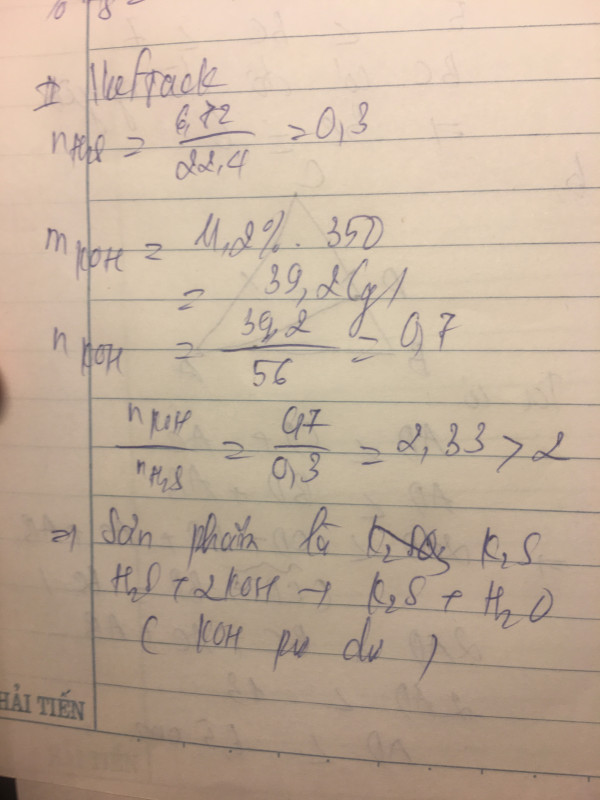 nH2S = 6,72 / 22,4 = 0,3
mKOH = 11,2% . 350
= 39,2 (g)
nKOH = 39,2 / 56 = 0,7
nKOH / nH2S = 0,7 / 0,3 = 2,33 > 2
=> Sản phẩm là K2S
H2S + 2KOH → K2S + H2O
( KOH pư dư )
HẢI TIẾN